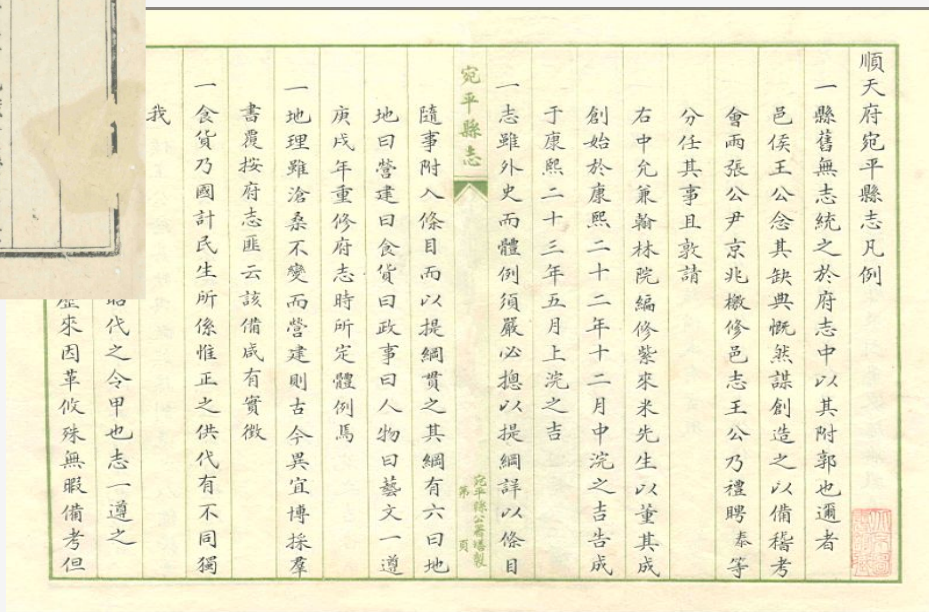 順天府宛平縣志凡例
一縣舊無志統之於府志中以其附郭也邇者
邑侯王公念其缺典慨然謀創造之以備稽考
會兩張公尹京兆檄修邑志王公乃禮聘泰等
分任其事且敦請
右中允兼翰林院編修紫來米先生以董其成
創始於康熙二十二年十二月中浣之吉告成
于康熙二十三年五月上浣之吉
一志雖外史而體例須嚴必摠以提綱詳以條目
宛平縣志
宛平縣公署塔製
第 頁
隨事附入條目而以提綱貫之其綱有六曰地
地曰營建曰食貨曰政事曰人物曰藝文一遵
庚戌年重修府志時所定體例焉
一地理雖滄桑不變而營建則古今異宜博採羣
書覆按府志匪云該備咸有實徵
一食貨乃國計民生所係惟正之供代有不同獨
我
昭代之令甲也志一遵之
歷來因革攸殊無暇備考但